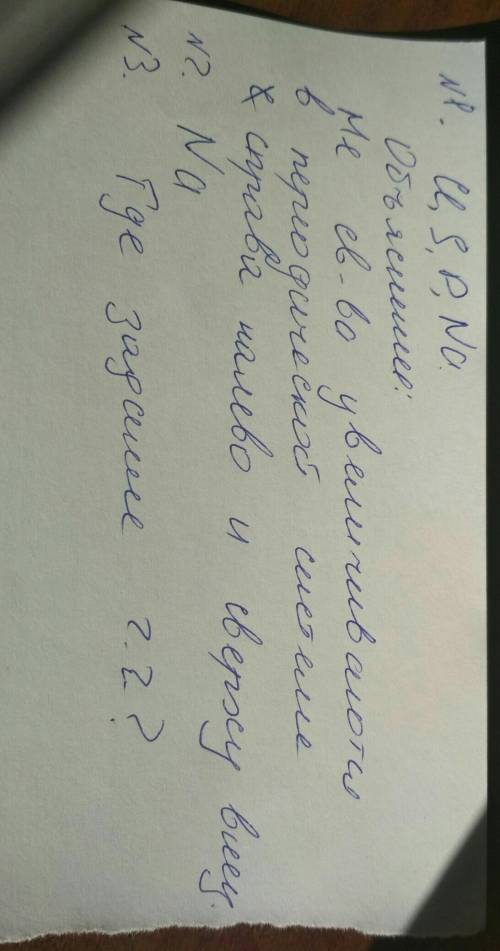 №1. Cl, S, P, Na.
Объяснение:
Ме св-ва увеличиваются
в периодической системе
справа налево и сверху вниз.
№2. Na
№3. Где задание ?.?.?